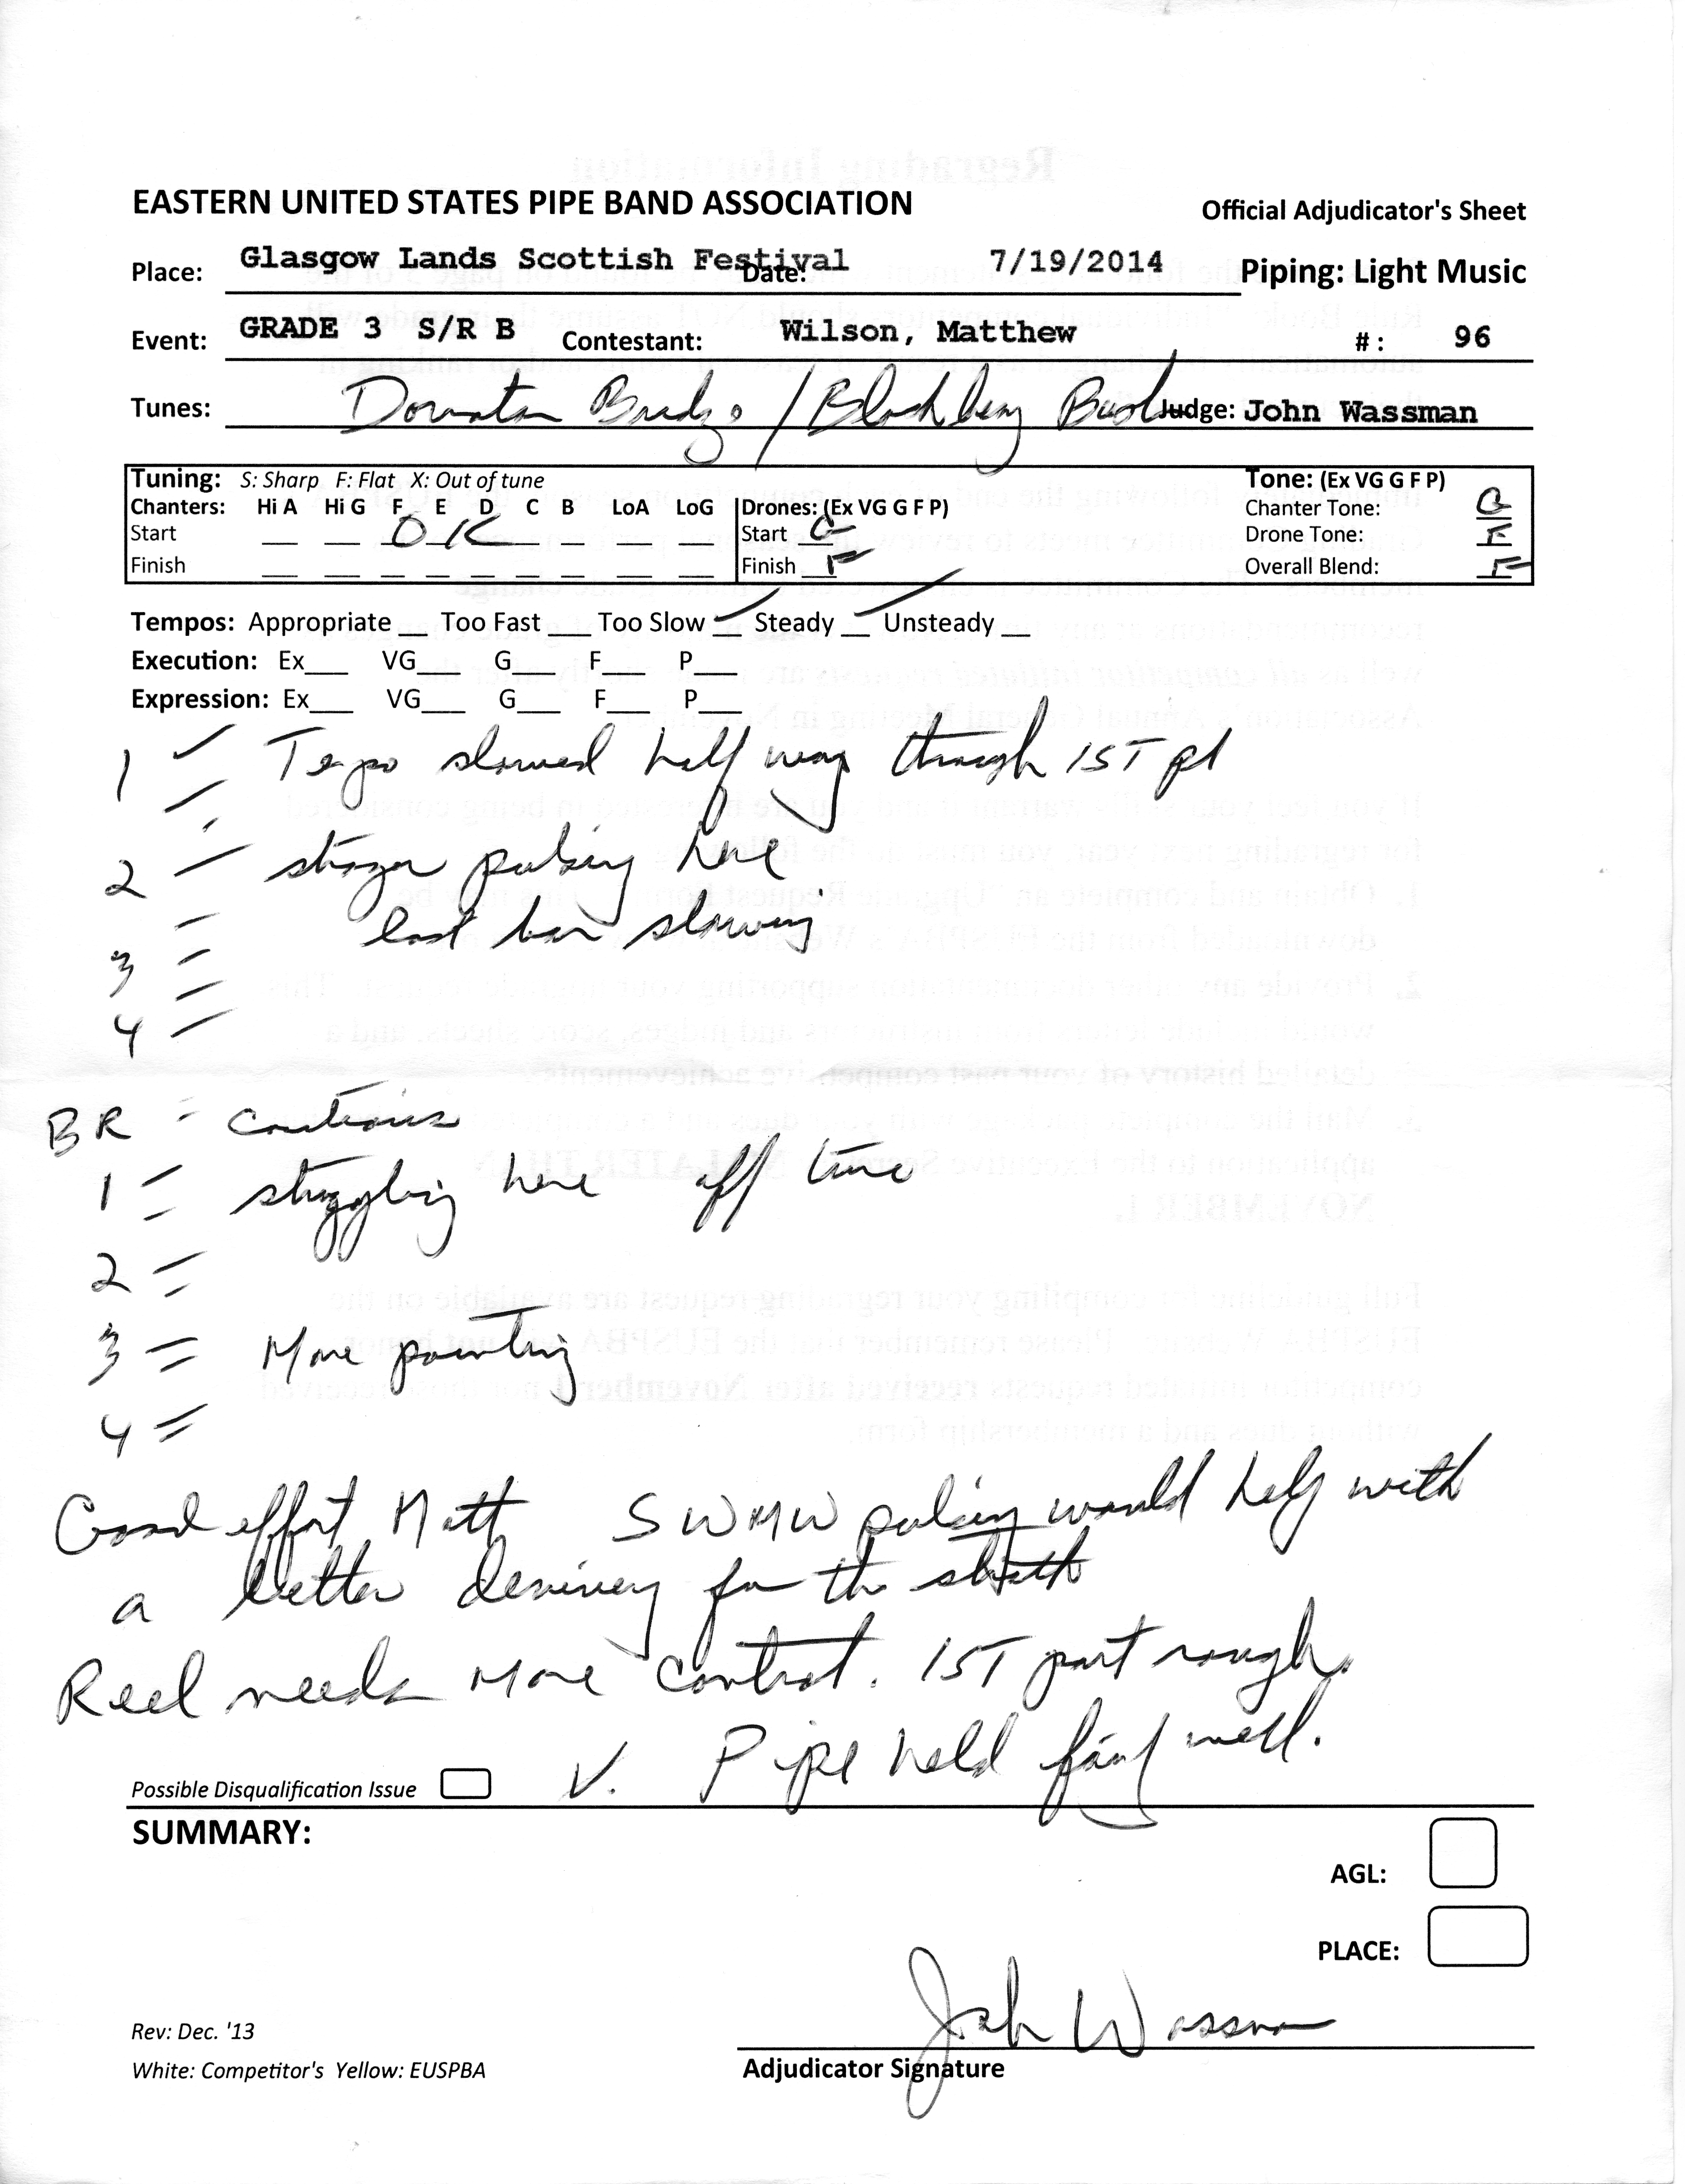 EASTERN UNITED STATES PIPE BAND ASSOCIATION Official Adjudicator's Sheet
Place: Glasgow Lands Scottish Festival Date: 7/19/2014 Piping: Light Music
Event: GRADE 3 S/R B Contestant: Wilson, Matthew #: 96
Tunes: Bridge / Blackberry Bush Judge: John Wassman
Tuning: S: Sharp F: Flat X: Out of tune Tone: (Ex VG G F P)
Chanters: Hi A Hi G F E D C B LoA LoG Drones: (Ex VG G F P) Chanter Tone: G
Start OK Start G Drone Tone: F
Finish Finish F Overall Blend: F
Tempos: Appropriate Too Fast Too Slow Steady Unsteady
Execution: Ex VG G F P
Expression: Ex VG G F P
1 Tempo slowed half way through 1ST pt
2 stronger pulsing here
last bar slowing
3
4
BR - cautious
1 struggling here off time
2
3 More pointing
4
Good effort Matt SWMW pulsing would help with
a better for the strath
Reel needs more control. 1ST part rough.
V. Pipe held fairly well.
Possible Disqualification Issue
SUMMARY:
AGL:
PLACE:
John Wassman
Rev: Dec. '13
White: Competitor's Yellow: EUSPBA Adjudicator Signature